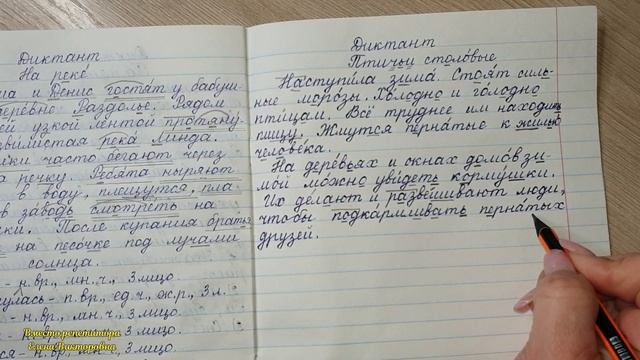 Диктант
На реке
и Денис гостят у бабуш-
деревне Раздолье. Рядом
узкой лентой протяну-
извилистая река Линда.
часто бегают через
речку. Ребята ныряют
в воду, плещутся, пла-
в заводь смотреть на
После купания братья
на песочке под лучами
солнца.
- н.вр., мн.ч., 3 лицо.
- п.вр., ед.ч., ж.р., 3 л.
- н.вр., мн.ч., 3 лицо
н.вр., мн.ч., 3 лицо.
- н.вр., мн.ч., 3 лицо.
Диктант
Птичьи столовые
Наступила зима. Стоят силь-
ные морозы. Холодно и голодно
птицам. Всё труднее им находить
пищу. Жмутся пернатые к жилью
человека.
На деревьях и окнах домов зи-
мой можно увидеть кормушки.
Их делают и развешивают люди,
чтобы подкармливать пернатых
друзей.
Вместо репетитора
Елена Викторовна